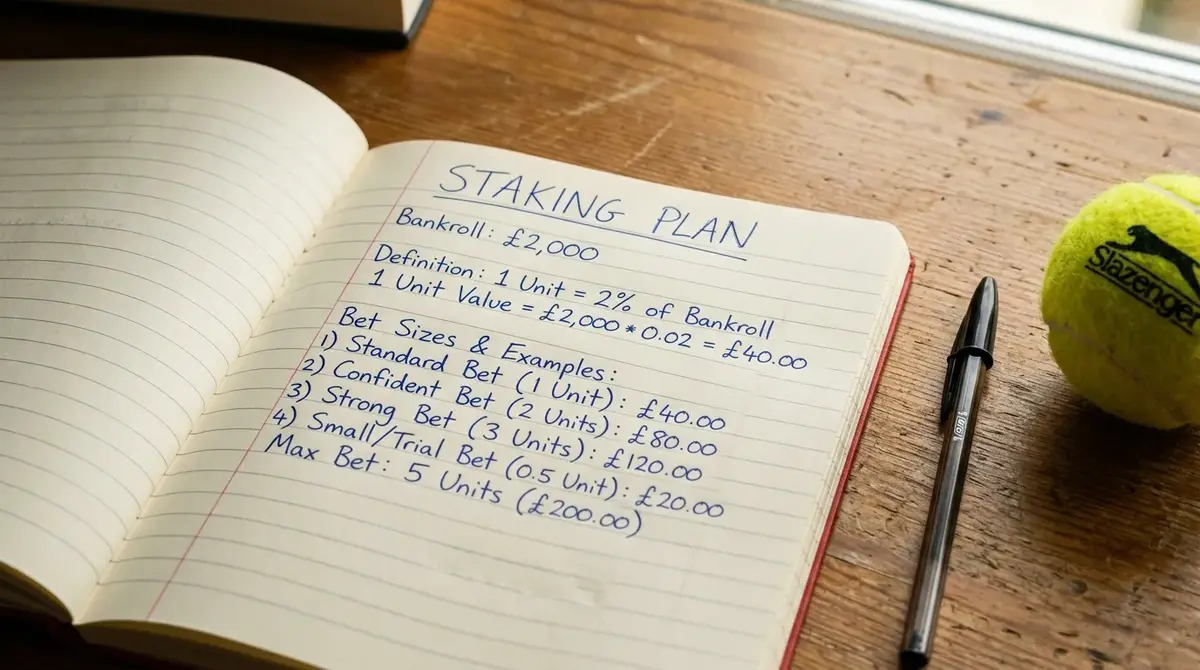 STAKING PLAN
Bankroll: £2,000
Definition: 1 Unit = 2% of Bankroll
1 Unit Value = £2,000 * 0.02 = £40.00
Bet Sizes & Examples:
1) Standard Bet (1 Unit): £40.00
2) Confident Bet (2 Units): £80.00
3) Strong Bet (3 Units): £120.00
4) Small/Trial Bet (0.5 Unit): £20.00
Max Bet: 5 Units (£200.00)
Slazenger